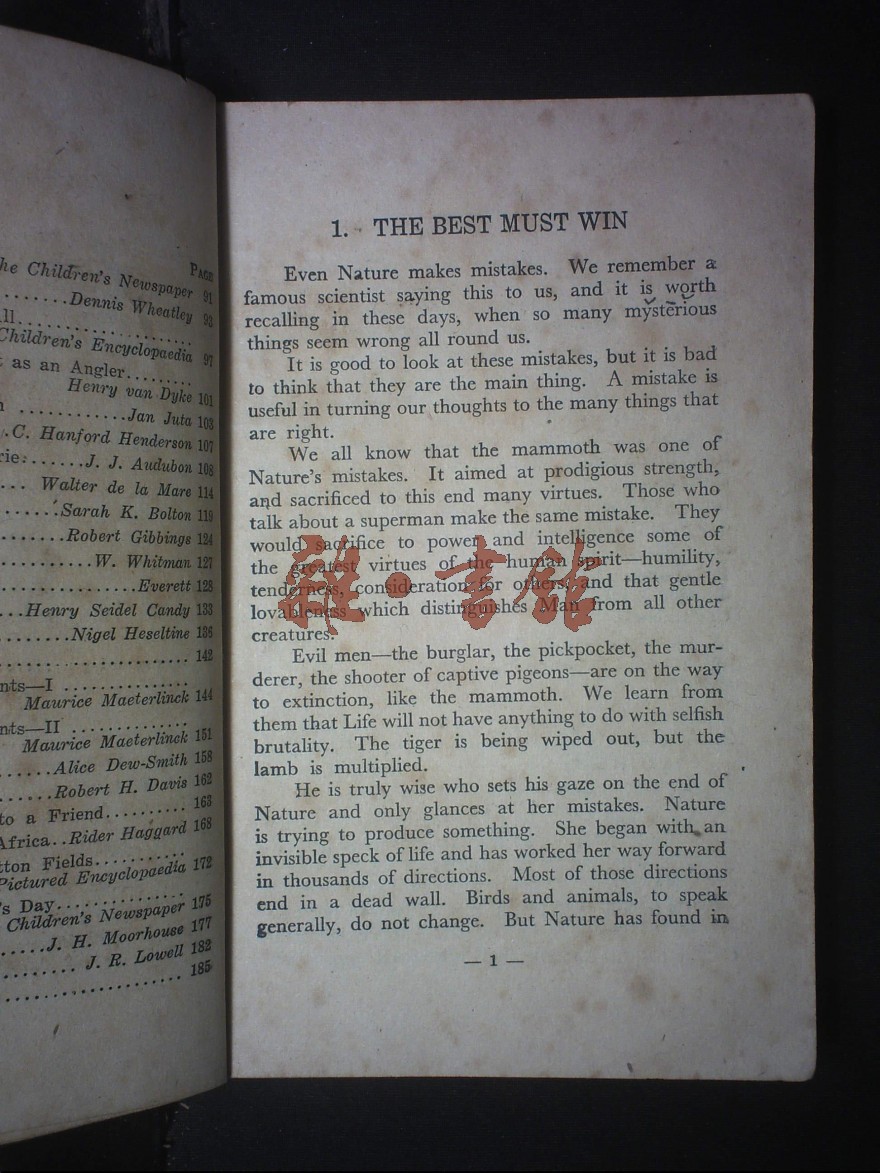 PAGE
he Children's Newspaper 91
Dennis Wheatley 93
ll
Children's Encyclopaedia 97
t as an Angler
Henry van Dyke 101
Jan Juta 103
C. Hanford Henderson 107
rie J. J. Audubon 108
Walter de la Mare 114
Sarah K. Bolton 119
Robert Gibbings 124
W. Whitman 127
Everett 128
Henry Seidel Candy 133
Nigel Heseltine 136
142
nts—I
Maurice Maeterlinck 144
nts—II
Maurice Maeterlinck 151
Alice Dew-Smith 158
Robert H. Davis 162
to a Friend 163
Africa..Rider Haggard 168
tton Fields
Pictured Encyclopaedia 172
's Day
Children's Newspaper 175
J. H. Moorhouse 177
J. R. Lowell 182
185
1. THE BEST MUST WIN
Even Nature makes mistakes. We remember a
famous scientist saying this to us, and it is worth
recalling in these days, when so many mysterious
things seem wrong all round us.
It is good to look at these mistakes, but it is bad
to think that they are the main thing. A mistake is
useful in turning our thoughts to the many things that
are right.
We all know that the mammoth was one of
Nature's mistakes. It aimed at prodigious strength,
and sacrificed to this end many virtues. Those who
talk about a superman make the same mistake. They
would sacrifice to power and intelligence some of
the greatest virtues of the human spirit—humility,
tenderness, consideration for others, and that gentle
lovableness which distinguishes Man from all other
creatures.
Evil men—the burglar, the pickpocket, the mur-
derer, the shooter of captive pigeons—are on the way
to extinction, like the mammoth. We learn from
them that Life will not have anything to do with selfish
brutality. The tiger is being wiped out, but the
lamb is multiplied.
He is truly wise who sets his gaze on the end of
Nature and only glances at her mistakes. Nature
is trying to produce something. She began with an
invisible speck of life and has worked her way forward
in thousands of directions. Most of those directions
end in a dead wall. Birds and animals, to speak
generally, do not change. But Nature has found in
— 1 —
雜·書館